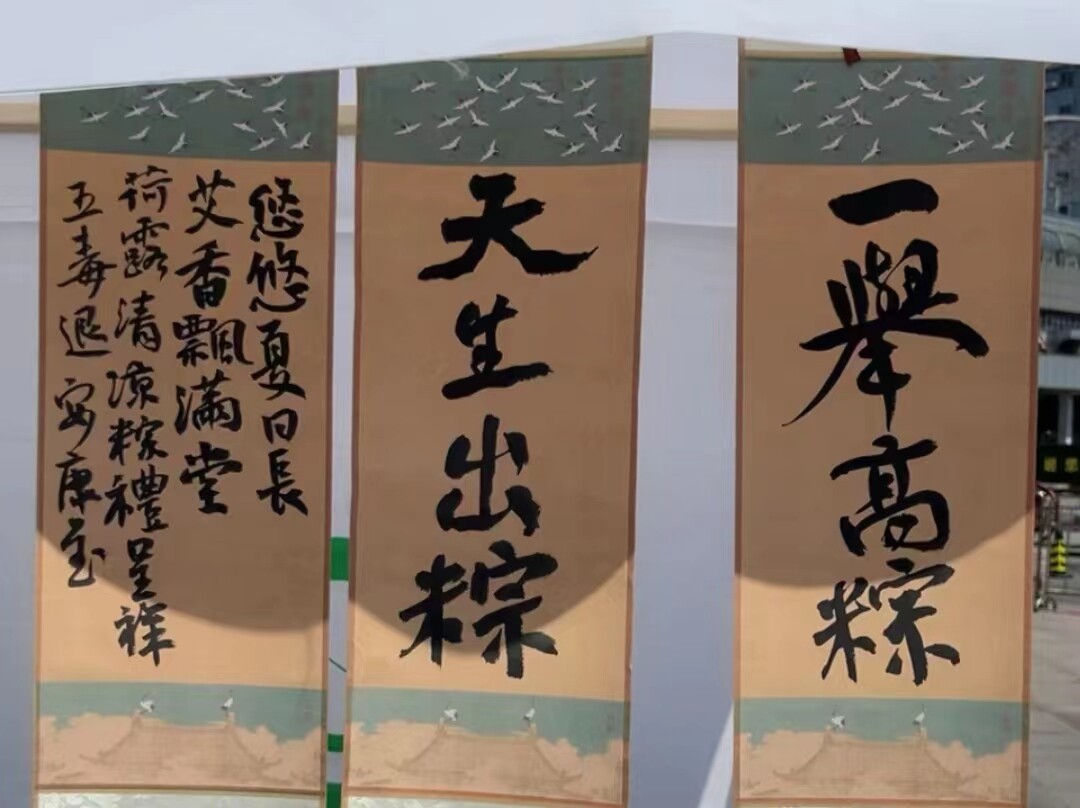 一舉高粽
天生出粽
悠悠夏日長
艾香飄滿堂
荷露清涼粽禮呈祥
五毒退安康至